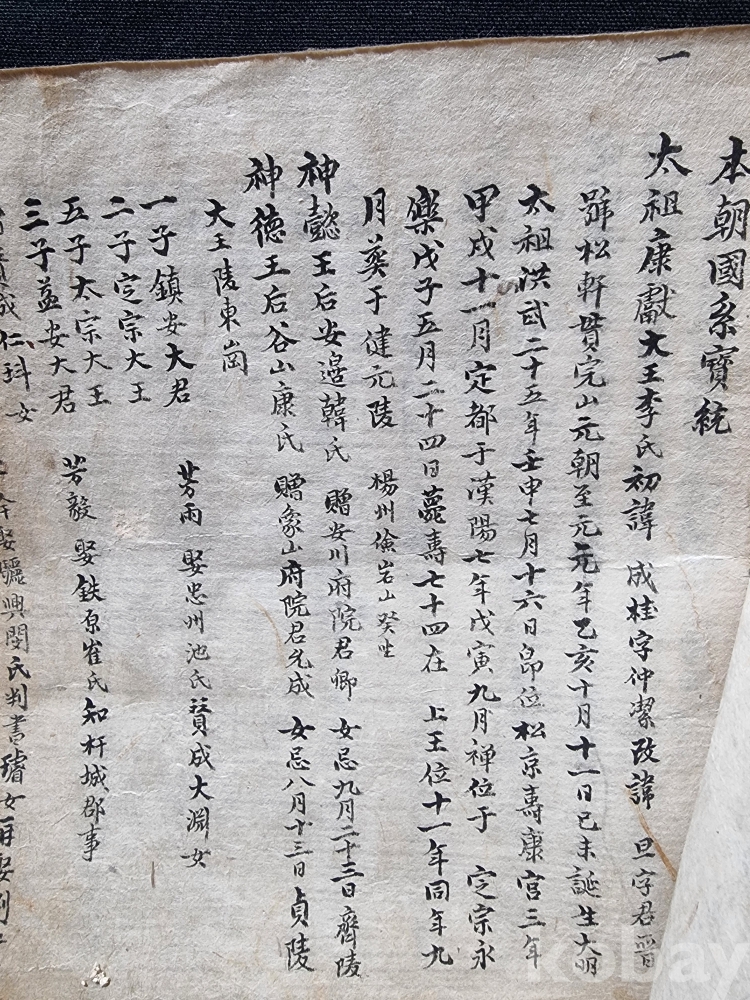 一
本朝國系寶統
太祖康獻大王李氏初諱 成桂字仲潔改諱 旦字君晋
號松軒貫完山元朝至元元年乙亥十月十一日己未誕生大明
太祖洪武二十五年壬申七月十六日即位松京壽康宮三年
甲戌十一月定都于漢陽七年戊寅九月禅位于 定宗永
樂戊子五月二十四日薨壽七十四在 上王位十一年同年九
月葬于健元陵 楊州儉岩山癸坐
神懿王后安邊韓氏 贈安川府院君卿 女忌九月二十三日齊陵
神德王后谷山康氏 贈象山府院君允成 女忌八月十三日貞陵
大王陵東崗
一子鎮安大君 芳雨 娶忠州池氏賛成大淵女
二子定宗大王
五子太宗大王
三子益安大君 芳毅 娶鉄原崔氏知杆城郡事
成仁㺶女 娶驪興閔氏判書璿女再娶
kobay